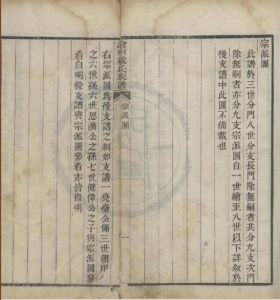 宗派圖
此譜於三世分門八世分支長門除無嗣者共分九支次門
除無嗣者亦分九支宗派圖自一世繪至八世以下詳敘於
後支譜中此圖不備載也
氏族譜
宗派圖
一
右宗派圖為後支譜之綱如支譜一堯臺公係三世朝用
之六世孫六世思濟公之孫七世健偉公之子與宗派圖參
看自明餘支譜與宗派圖參看亦皆自明